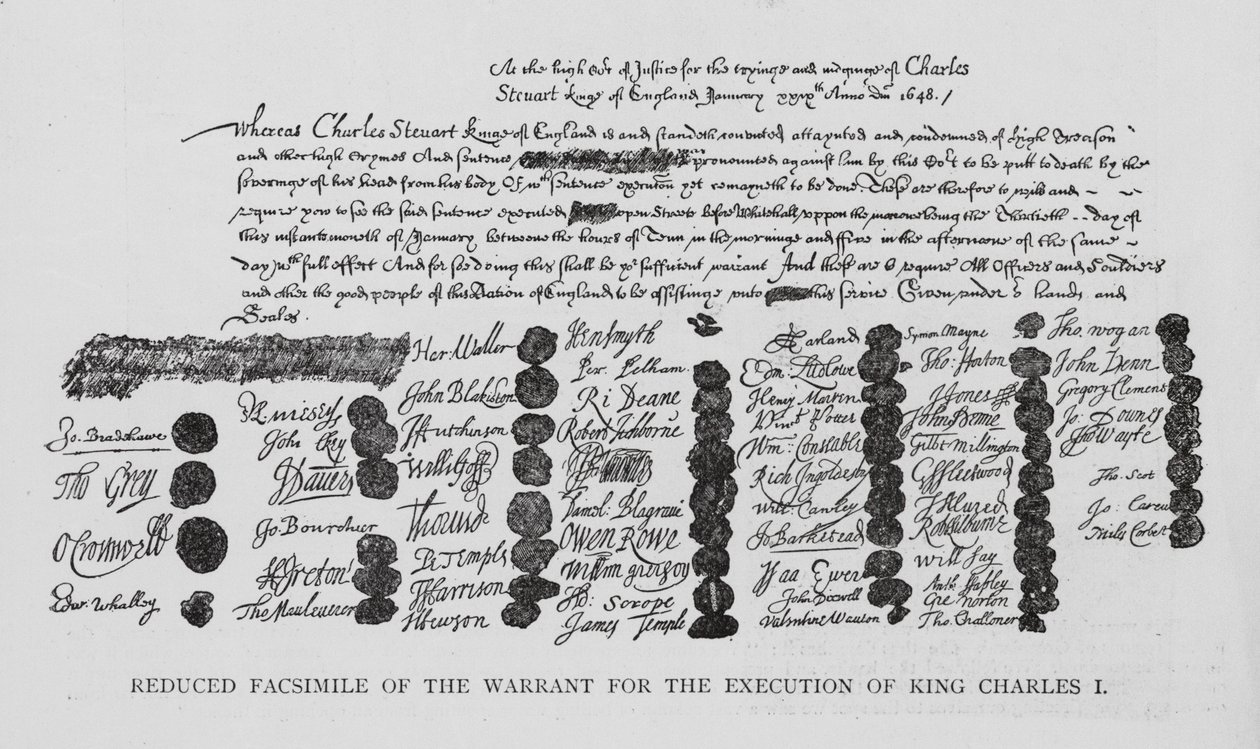 At the high Cort of Justice for the tryinge and iudginge of Charles
Steuart kinge of England January xxixth Anno Dni 1648./
Whereas Charles Steuart kinge of England is and standeth convicted attaynted and condemned of high Treason
and other high Crymes And sentence was pronounced against him by this Cort to be putt to death by the
severinge of his head from his body Of wch sentence execucon yet remayneth to be done These are therefore to will and
require you to see the said sentence executed open Streete before Whitehall uppon the morrowe being the Thirtieth day of
this instante moneth of January betweene the hours of Tenn in the morninge and ffive in the afternoone of the same
day wth full effect And for soe doing this shall be yor sufficient warrant And these are to require All Officers and Souldiers
and other the good people of this Nation of England to be assistinge unto this service Given under or hands and
Seales
Jo. Bradshawe
Tho Grey
O Cromwell
Edw. Whalley
John
J Danvers
Jo Bourchier
H Ireton
Tho Mauleverer
Her: Waller
John Blakiston
J Hutchinson
Willi Goff
P Temple
T Harrison
J Hewson
Hen Smyth
Per. Pelham
Ri Deane
Robert Tichborne
Daniel Blagrave
Owen Rowe
Adr: Scrope
James Temple
Edm: Ludlowe
Henry Marten
Vint Potter
Wm: Constable
Rich Ingoldesby
Will: Cawley
Jo Barkstead
Isaa Ewer
John Dixwell
Valentine Wauton
Symon Mayne
Tho: Horton
J Jones
John
Gilbt Millington
G ffleetwood
J Alured
Rob Lilburne
Will Say
Gre Norton
Tho. Challoner
Tho. wogan
John Venn
Gregory Clemens
Jo: Downes
Tho Wayte
Tho: Scot
Jo: Carew
Miles Corbet
REDUCED FACSIMILE OF THE WARRANT FOR THE EXECUTION OF KING CHARLES I.